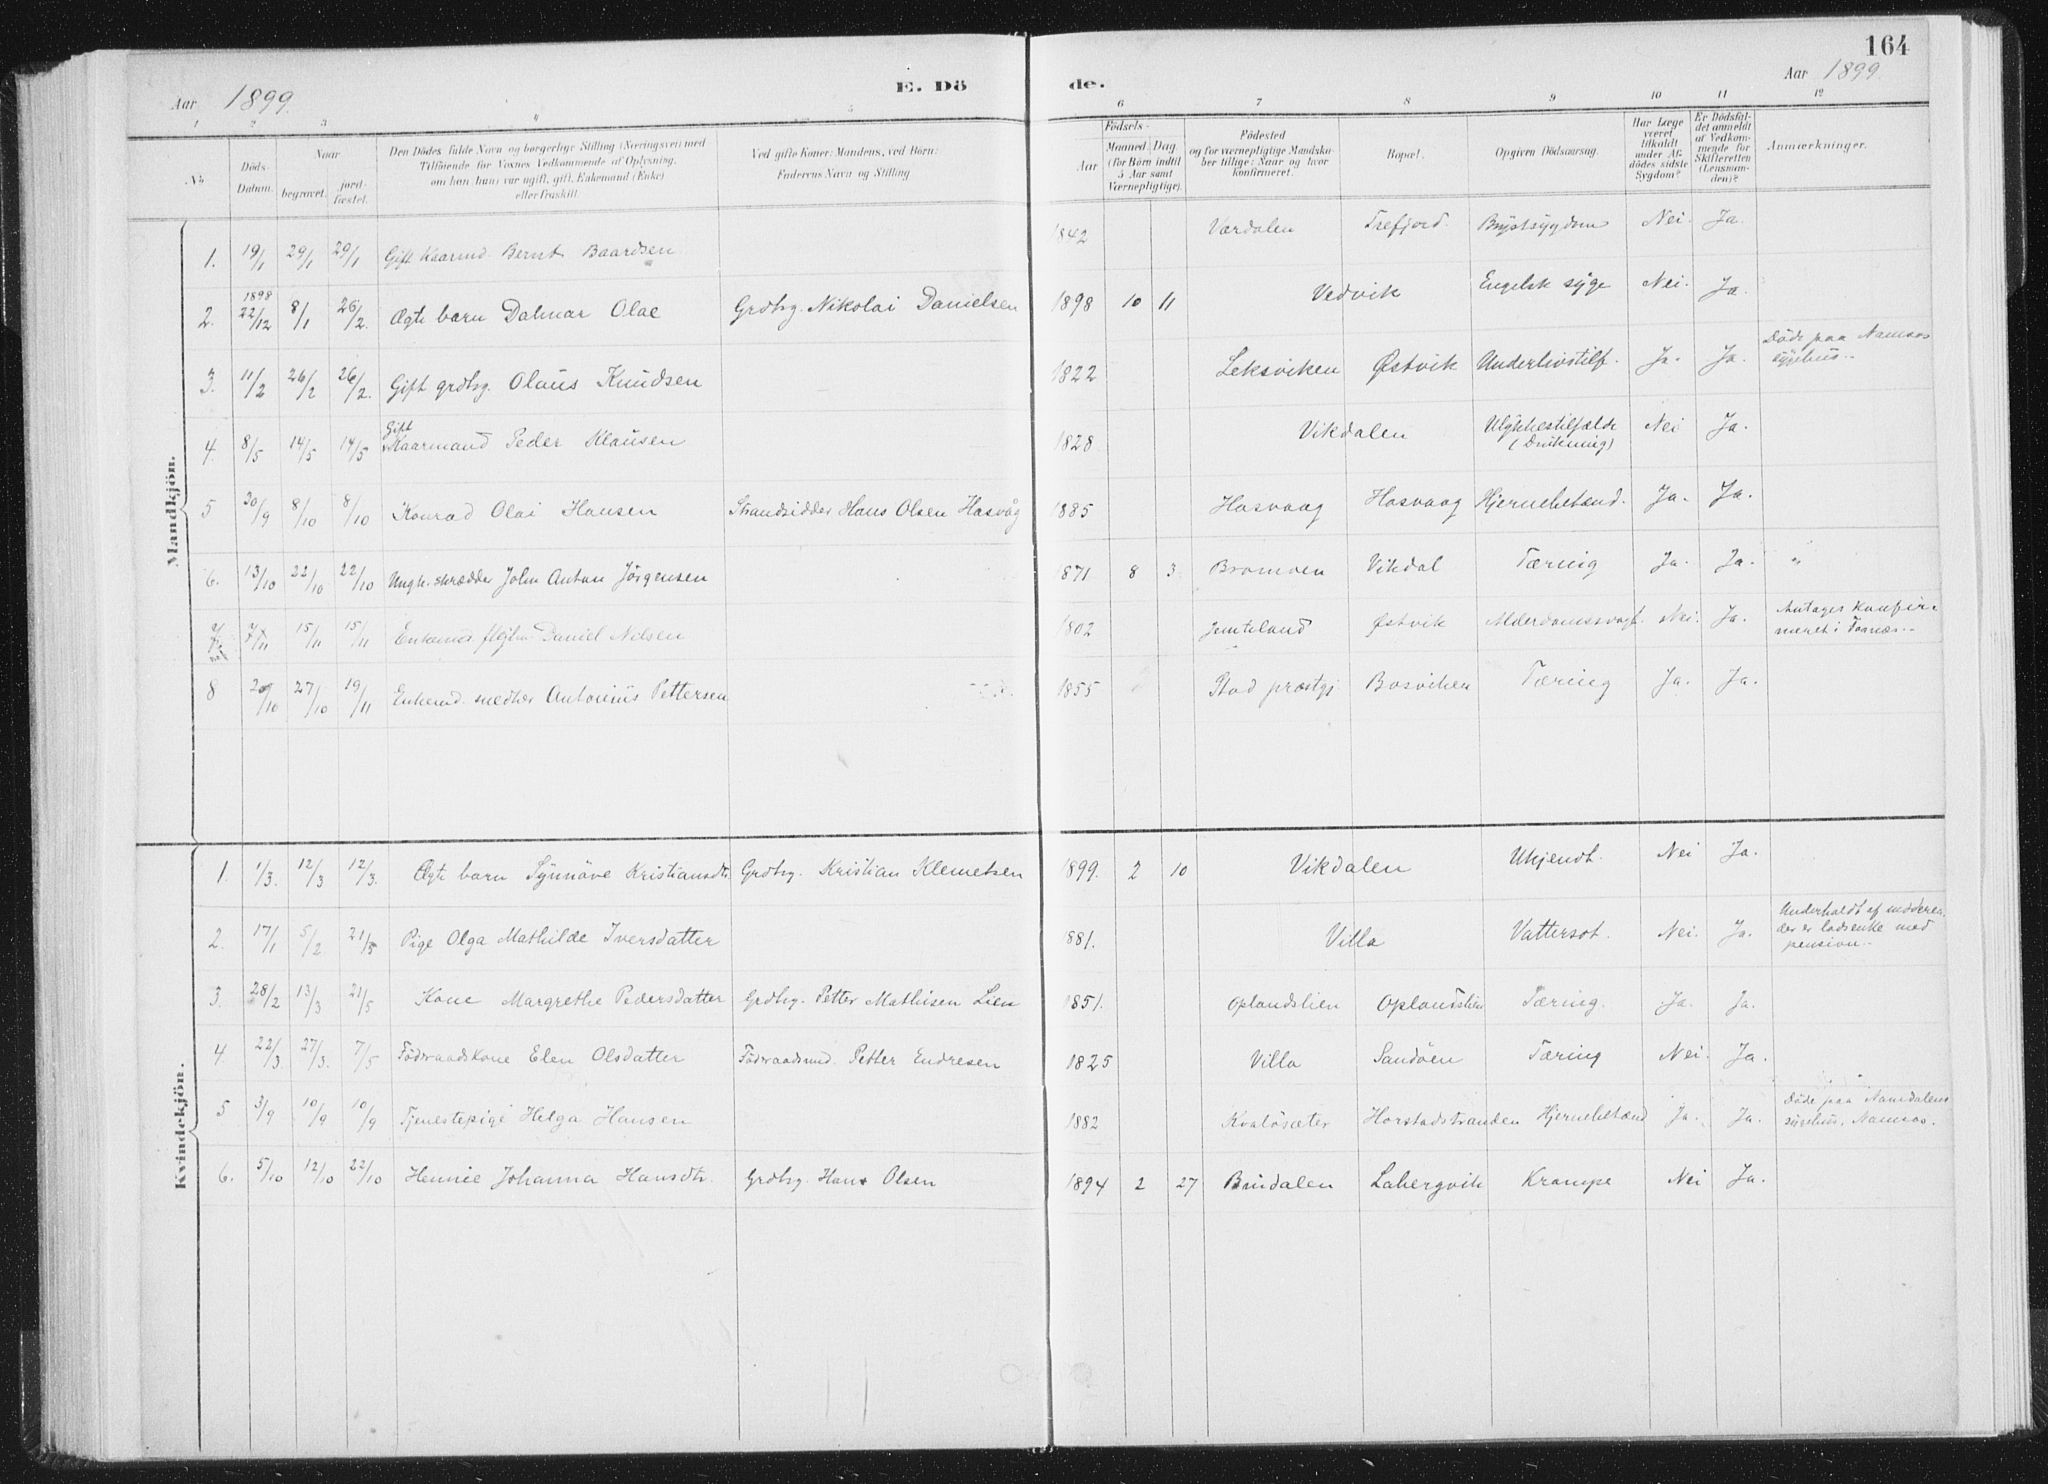 164
Aar 1899.
E. Dö
de.
Aar 1899.
1 2 3 4 5 6 7 8 9 10 11 12
No.
Döds-Datum.
Naar
begravet.
jord-fæstet.
Den Dödes fulde Navn og borgerlige Stilling (Næringsvei) med
Tilföiende for Voxnes Vedkommende af Oplysning,
om han (hun) var ugift, gift, Enkemand (Enke)
eller fraskilt.
Ved gifte Koner: Mandens, ved Börn:
Faderens Navn og Stilling
Födsels-
Aar
Maaned Dag
(for Börn indtil
5 Aar samt
Værnepligtige).
Födested
og for værnepligtige Mandska-
ber tillige: Naar og hvor
konfirmeret.
Bopæl.
Opgiven Dödsaarsag.
Har Læge
været
tilkaldt
under Af-
dödes sidste
Sygdom?
Er Dödsfal-
det anmeldt
af Vedkom-
mende for
Skifteretten
(Lensman-
den)?
Anmærkninger.
Mandkjön.
1. 19/1 29/1 29/1 Gift Kaarmd. Bernt Baardsen 1842 Værdalen Trefjord. Brystsygdom Nei. Ja.
2. 1898 22/12 8/1 26/2. Ægte barn Dalmar Olae Grdbrg. Nikolai Danielsen 1898 10 11 Vedvik Engelsk syge Nei. Ja.
3. 11/2 26/2 26/2. Gift grdbrg. Olaus Knudsen 1822 Leksviken Østvik Underlivstilf. Ja. Ja. Døde paa Namsos sygehus.
4. 8/5 14/5 14/5 Gift Kaarmand Peder Klausen 1828 Vikdalen Ulykkestilfælde (Drukning) Nei Ja.
5 30/9 8/10 8/10 Konrad Olai Hansen Strandsidder Hans Olsen Hasvåg 1885 Hasvaag Hasvaag Hjernebetænd. Ja. Ja.
6. 13/10 22/10 22/10 Ungk. skrædder John Anton Jörgensen 1871 8 3. Bromoen Vikdal Tæring Ja. Ja. "
7 7/11 15/11 15/11 Enkemd. Daniel Nilsen 1802 Jemteland Østvik Alderdomssvagh. Nei. Ja. Antages konfir-
meret i Fosnæs.
8 20/10 27/10 19/11 Enkemd. snedker Antonius Pettersen 1855 Stod præstgj. Bosviken Tæring Ja. Ja.
Kvindekjön.
1. 1/3. 12/3 12/3. Ægte barn Synnöve Kristiansdtr. Grdbrg. Kristian Klemetsen 1899. 2 10 Vikdalen Ukjendt. Nei Ja.
2. 17/1 5/2 21/5 Pige Olga Mathilde Iversdatter 1881. Villa Vattersot. Nei. Ja. Underholdt af moderen,
der er lodsenke med
pension.
3. 28/2 13/3 21/5 Kone Margrethe Pedersdatter Grdbrg. Petter Mathisen Lien 1851. Oplandslien Oplandslien Tæring. Ja. Ja.
4. 22/3. 27/3. 7/5 Föderaadskone Elen Olsdatter Föderaadsmd. Petter Endresen 1825 Villa Sandöen Tæring Nei. Ja.
5 3/9 10/9 10/9 Tjenestepige Helga Hansen 1882 Kvalösæter Horstadstranden Hjernebetænd Ja. Ja. Døde paa Namdalens
sygehus, Namsos.
6. 5/10 12/10 22/10 Hennie Johanna Hansdtr. Grdbrg. Hans Olsen 1894 2 27 Bindalen Labergvik Krampe Nei Ja.